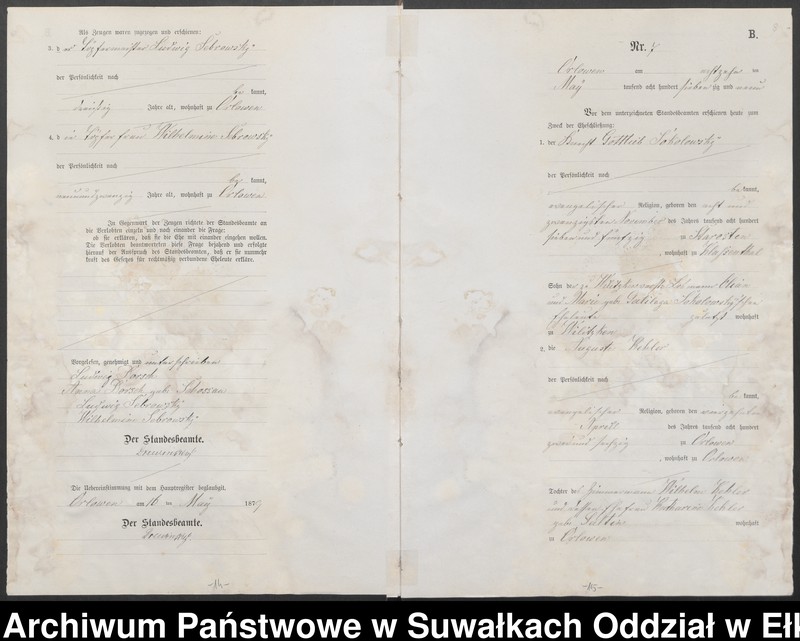 Als Zeugen waren zugezogen und erschienen:
3. der Töpfermeister Ludwig Sobrowsky
der Persönlichkeit nach
be kannt,
dreißig Jahre alt, wohnhaft zu Orlowen
4. die Töpferfrau Wilhelmine Sobrowsky
der Persönlichkeit nach
be kannt,
neunundzwanzig Jahre alt, wohnhaft zu Orlowen
In Gegenwart der Zeugen richtete der Standesbeamte an
die Verlobten einzeln und nach einander die Frage:
ob sie erklären, daß sie die Ehe mit einander eingehen wollen.
Die Verlobten beantworteten diese Frage bejahend und erfolgte
hierauf der Ausspruch des Standesbeamten, daß er sie nunmehr
kraft des Gesetzes für rechtmäßig verbundene Eheleute erkläre.
Vorgelesen, genehmigt und unterschrieben
Ludwig
Anna geb.
Ludwig Sobrowsky
Wilhelmine Sobrowsky
Der Standesbeamte.
Die Uebereinstimmung mit dem Hauptregister beglaubigt.
Orlowen am 16 ten May 1879
Der Standesbeamte.
-14-
B.
Nr. 7
Orlowen am achtzehn ten
May tausend acht hundert siebenzig und neun
Vor dem unterzeichneten Standesbeamten erschienen heute zum
Zweck der Eheschließung:
1. der Gottlieb Sokolowsky
der Persönlichkeit nach
be kannt,
evangelischer Religion, geboren den acht und
zwanzigsten November des Jahres tausend acht hundert
sieben und fünfzig zu
, wohnhaft zu
Sohn des zu
und Marie geb. Sokolowsky'schen
Eheleute zuletzt wohnhaft
zu Wilitzken
2. die Auguste
der Persönlichkeit nach
be kannt,
evangelischer Religion, geboren den vierzehnten
April des Jahres tausend acht hundert
zwei und sechzig zu Orlowen
, wohnhaft zu Orlowen
Tochter des Zimmermann Wilhelm
und dessen Ehefrau Katharine
geb. wohnhaft
zu Orlowen
-15-
Archiwum Państwowe w Suwałkach Oddział w Eł